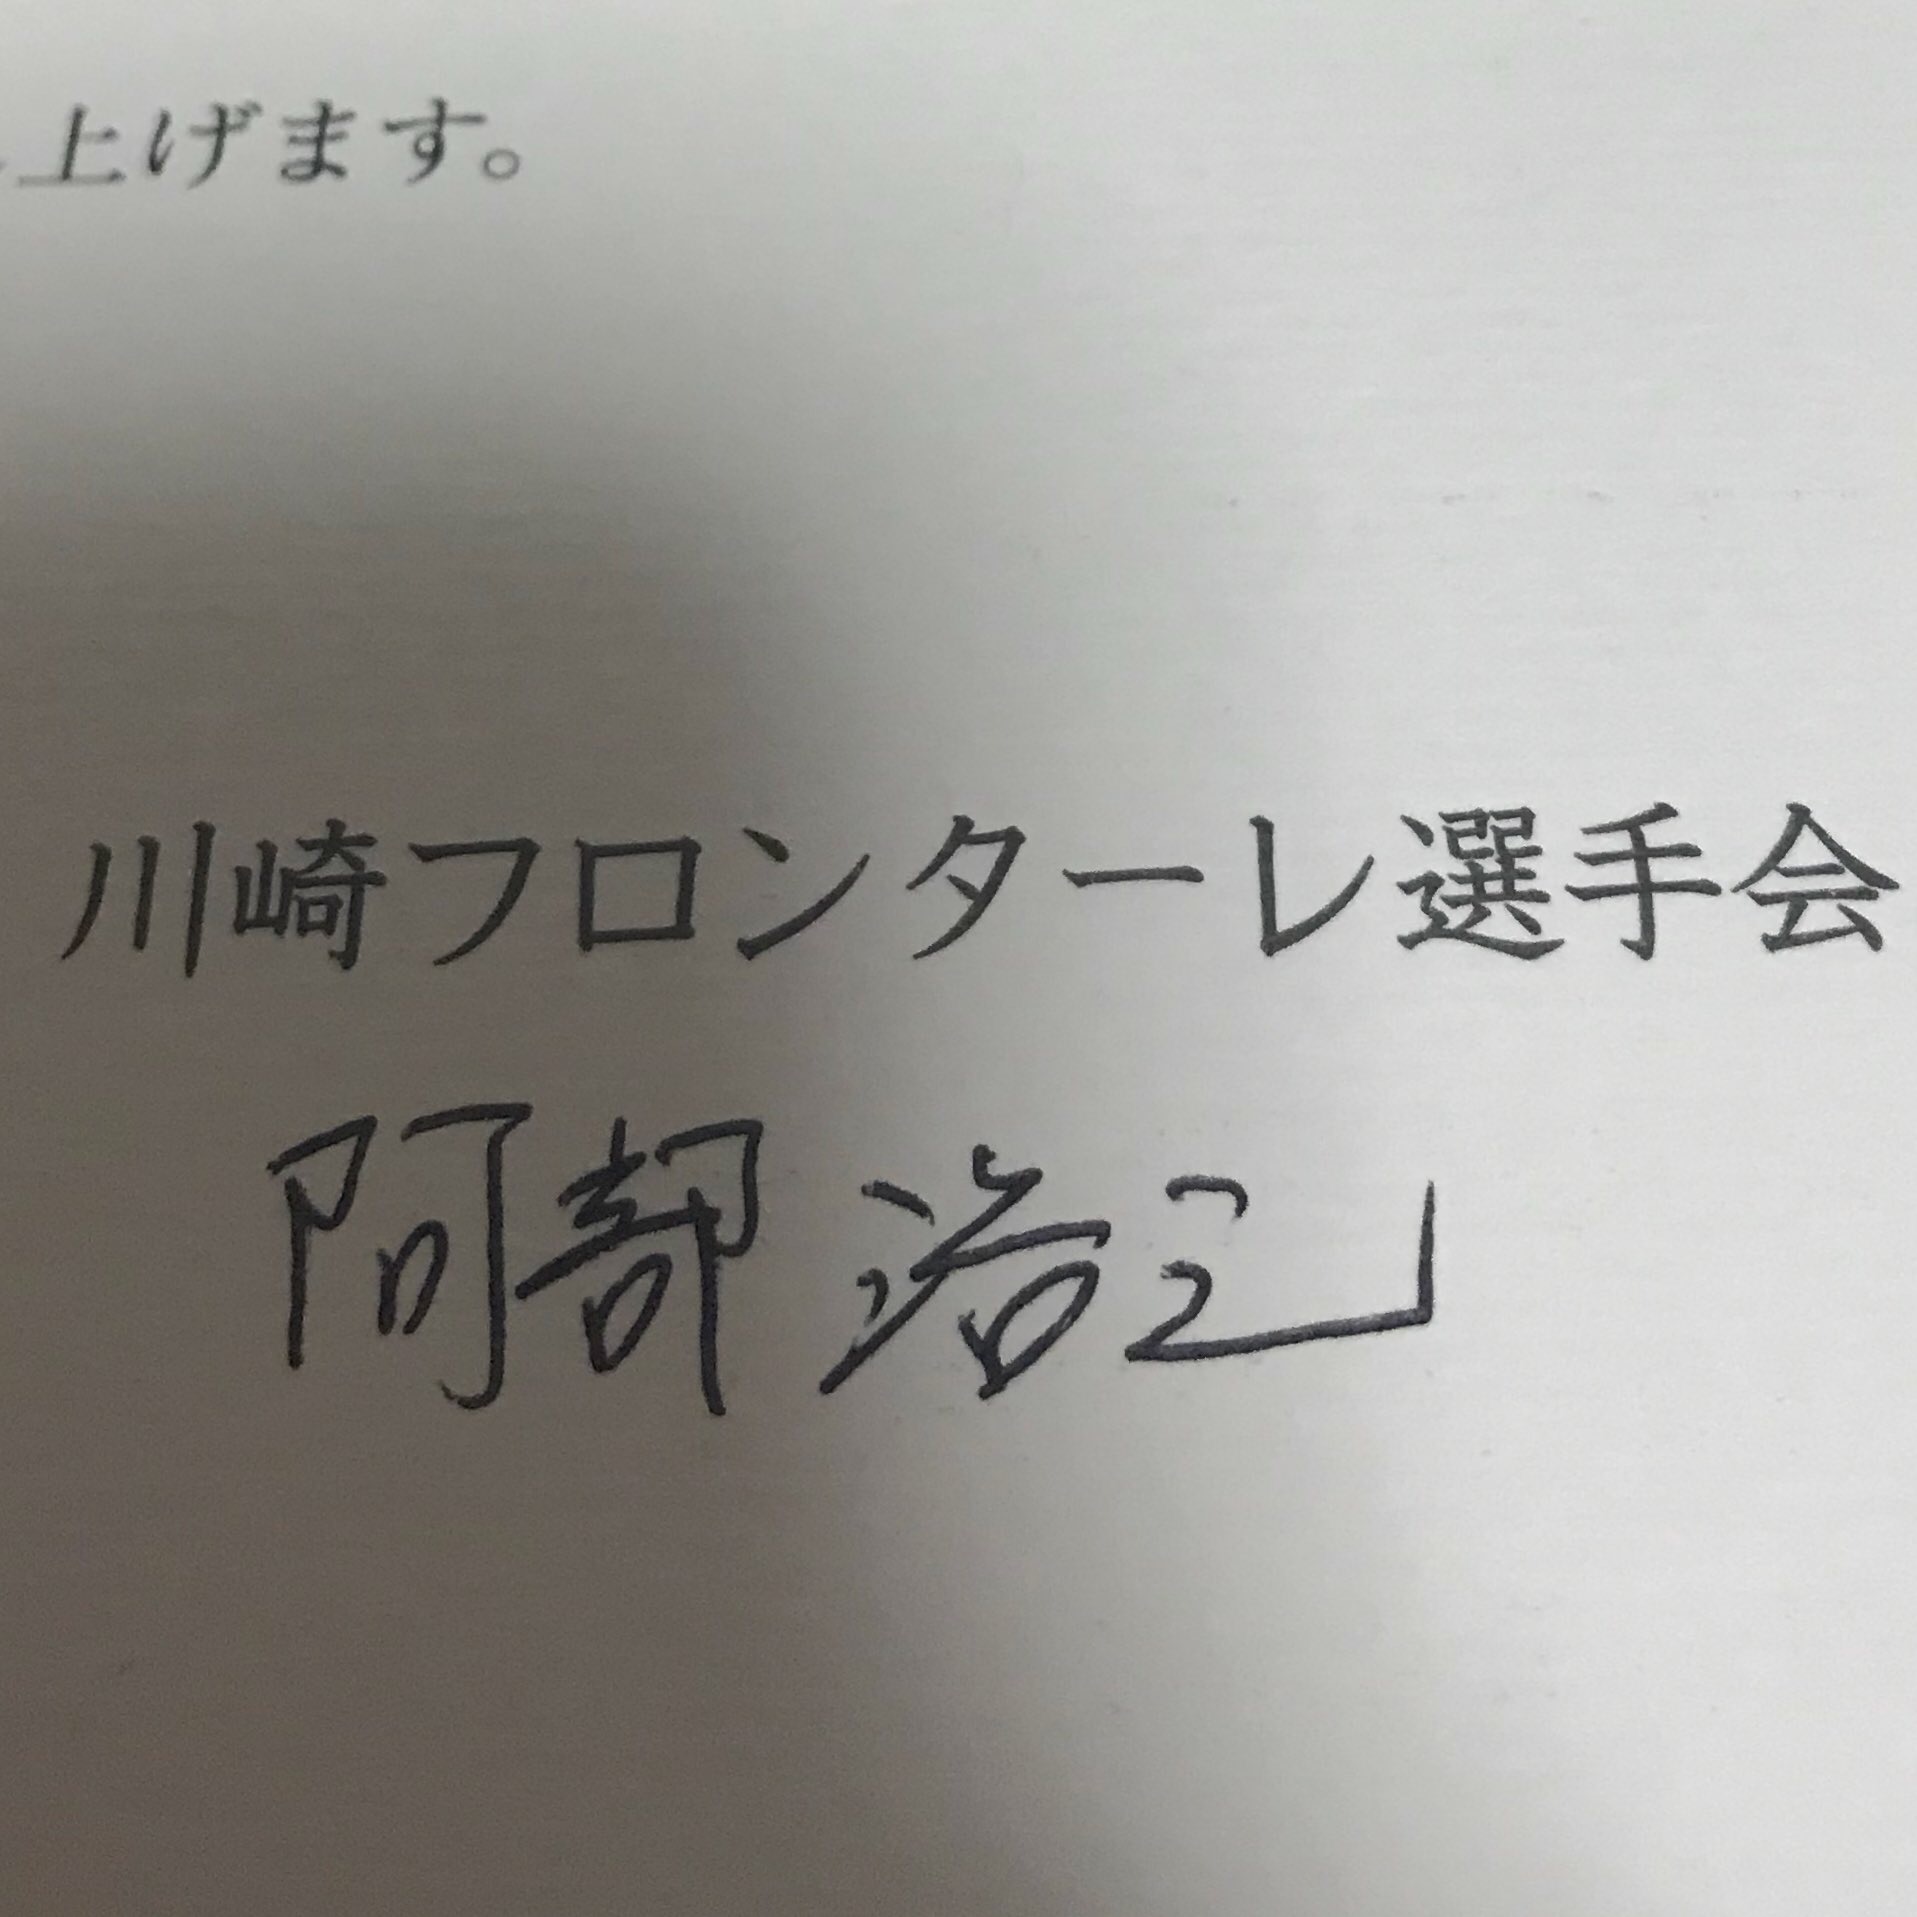 上げます。
川崎フロンターレ選手会
阿部浩之